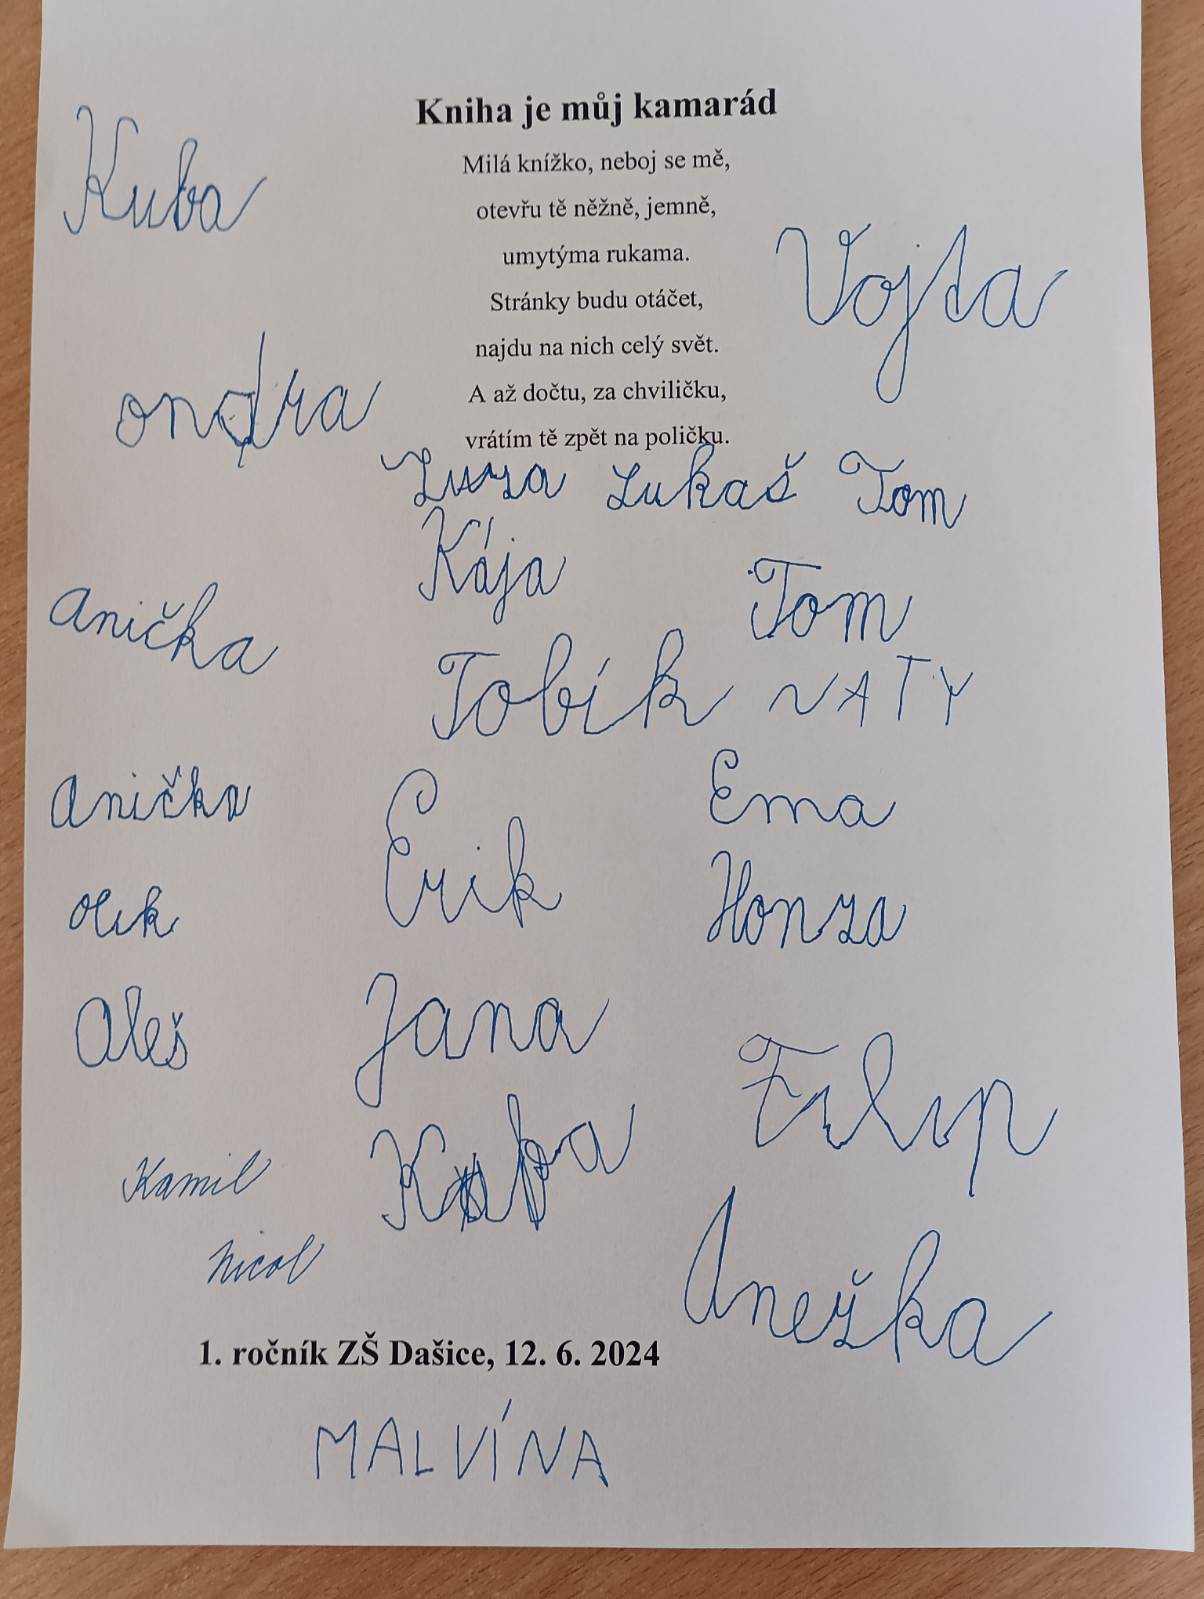 Kniha je můj kamarád
Milá knížko, neboj se mě,
otevřu tě něžně, jemně,
umytýma rukama.
Stránky budu otáčet,
najdu na nich celý svět.
A až dočtu, za chviličku,
vrátím tě zpět na poličku.
Kuba
Vojta
ondra
Zuza Lukaš Tom
Kája
Tom
Anička
Tobík NATY
Anička
Erik
Ema
Honza
Aleš
Jana
Filip
Kamil
Kuba
Nicol
Anežka
1. ročník ZŠ Dašice, 12. 6. 2024
MALVÍNA